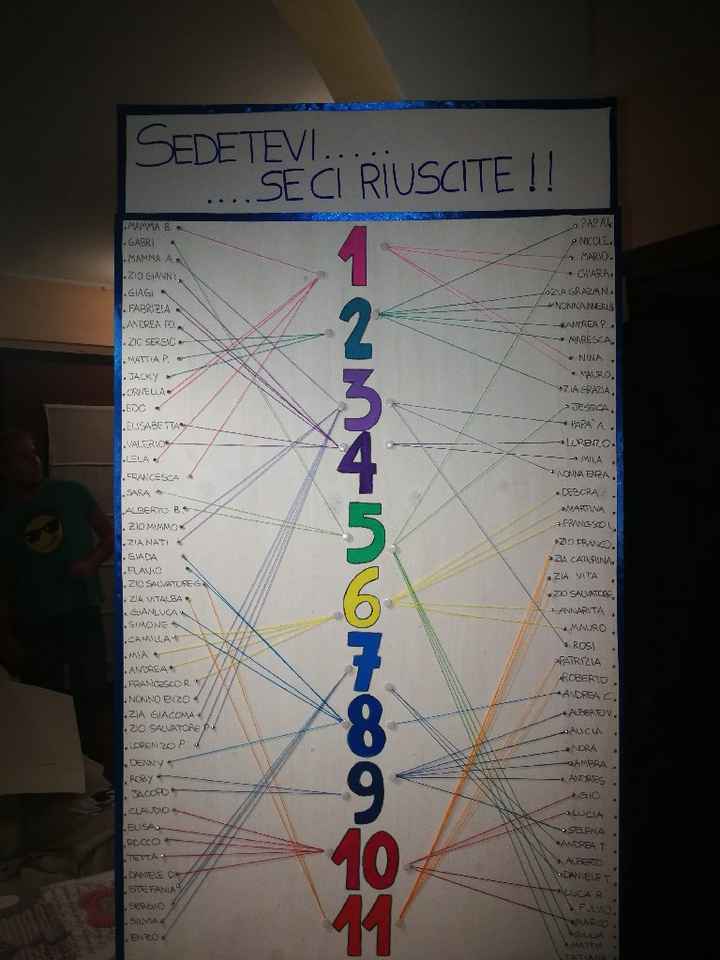 SEDETEVI.....
....SE CI RIUSCITE !!
MAMMA B.
GABRI
MAMMA A.
ZIO GIANNI
GIAGI
FABRIZIA
ANDREA FO.
ZIO SERGIO
MATTIA P.
JACKY
ORNELLA
EDO
ELISABETTA
VALERIO
LELA
FRANCESCA
SARA
ALBERTO B.
ZIO MIMMO
ZIA NATI
GIADA
FLAVIO
ZIO SALVATORE G.
ZIA VITALBA
GIANLUCA
SIMONE
CAMILLA
MIA
ANDREA
FRANCESCO R.
NONNO ENZO
ZIA GIACOMA
ZIO SALVATORE P.
LORENZO P.
DENNY
ROBY
JACOPO
CLAUDIO
ELISA
ROCCO
TETTA
DANIELE D.
STEFANIA
SERGIO
SILVIA
ENZO
1
2
3
4
5
6
7
8
9
10
11
NICOLE
MARIO
CHIARA
ZIA GRAZIA N.
ANDREA P.
MARESCA
NINA
MAURO
ZIA GRAZIA
JESSICA
PAPA' A.
LORENZO
MILA
NONNA ENZA
DEBORA
MARTINA
FRANCESCO L.
ZIO FRANCO
ZIA CATERINA
ZIA VITA
ZIO SALVATORE
ANNARITA
MAURO
ROSI
PATRIZIA
ROBERTO
ANDREA C.
ALBERTO V.
ALICIA
NORA
AMBRA
ANDRES
GIO
LUCIA
SELENA
ANDREA T.
ALBERTO
DANIELE T.
LUCA R.
FULVIO
MARCO
GIULIA
MATTIA
TATIANA